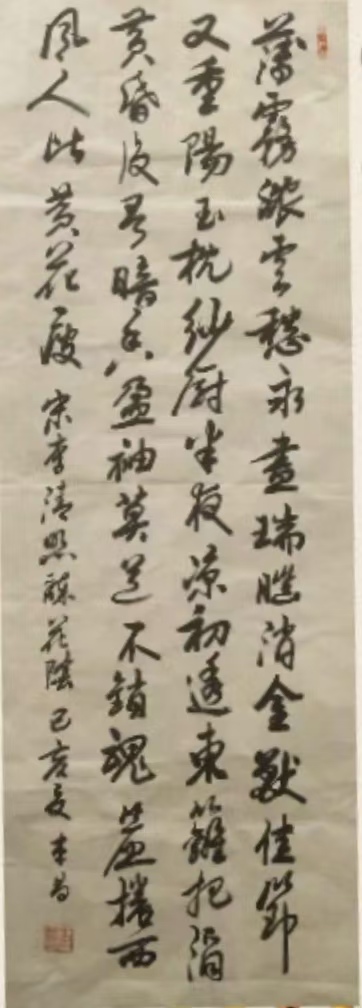 薄霧濃雲愁永晝瑞腦消金獸佳節
又重陽玉枕紗厨半夜凉初透東籬把酒
黄昏後有暗香盈袖莫道不銷魂簾捲西
風人比黄花瘦 宋李清照醉花陰 己亥夏